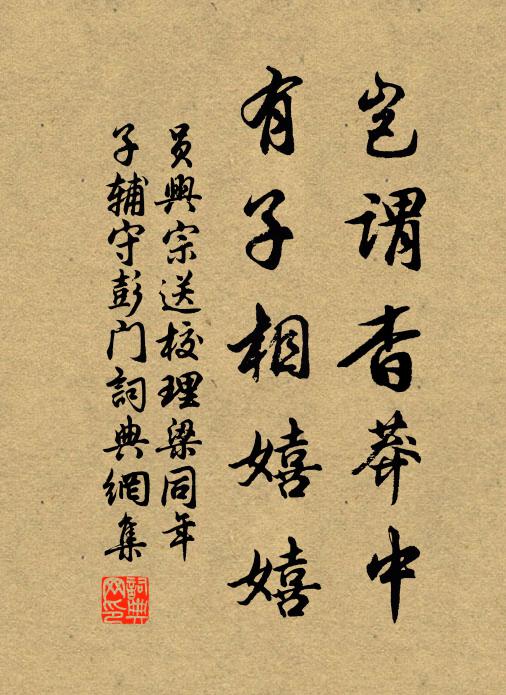 岂谓杳莽中
有子相嬉嬉
员興宗送校理梁同年
子辅守彭门詞典網集
詞典网印